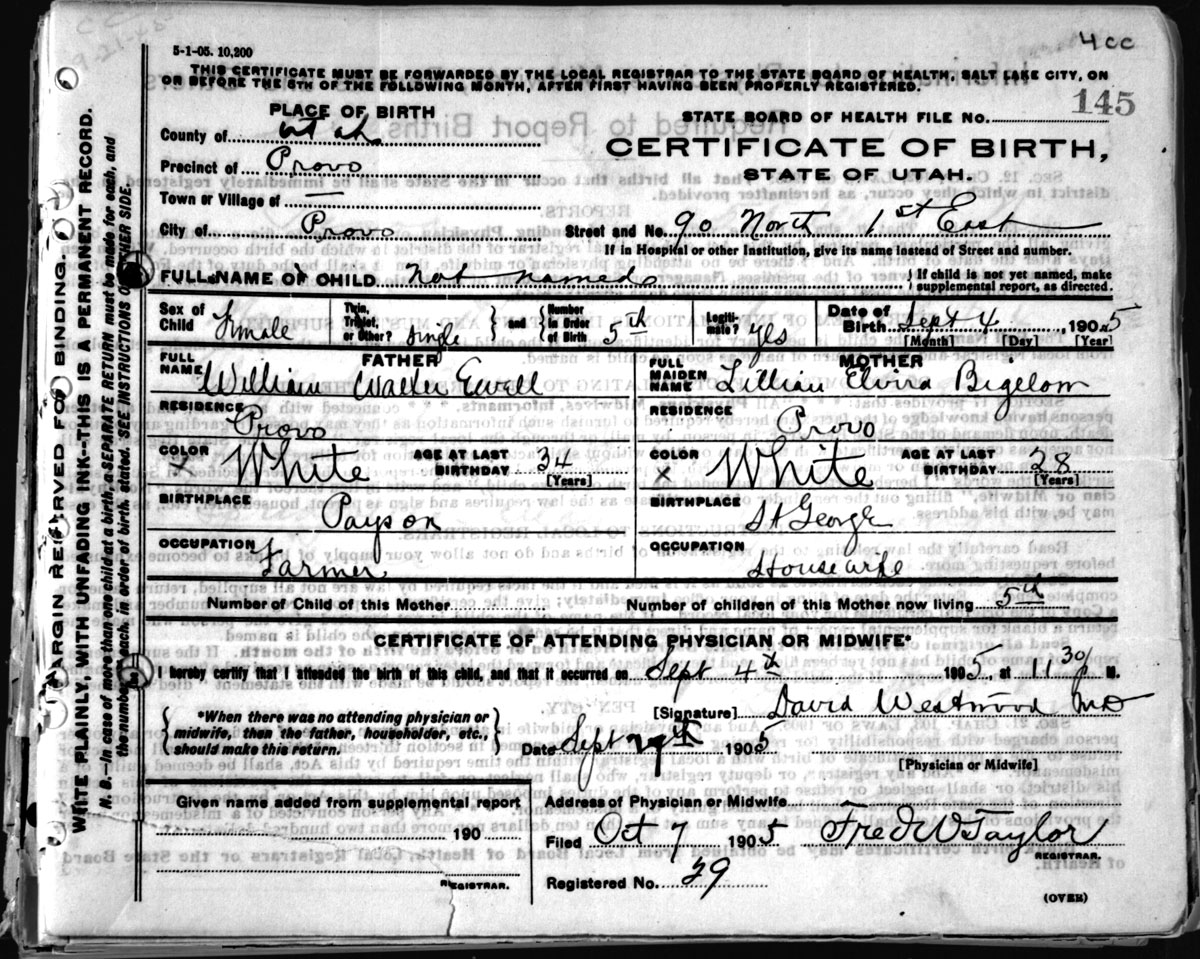 4cc
5-1-05. 10,200
THIS CERTIFICATE MUST BE FORWARDED BY THE LOCAL REGISTRAR TO THE STATE BOARD OF HEALTH, SALT LAKE CITY, ON
OR BEFORE THE 5TH OF THE FOLLOWING MONTH, AFTER FIRST HAVING BEEN PROPERLY REGISTERED.
145
PLACE OF BIRTH
STATE BOARD OF HEALTH FILE No.
County of Utah
CERTIFICATE OF BIRTH,
Precinct of Provo
STATE OF UTAH.
Town or Village of —
City of Provo Street and No. 90 North 1st East
If in Hospital or other Institution, give its name instead of Street and number.
FULL NAME OF CHILD Not named } If child is not yet named, make supplemental report, as directed.
Sex of Child Female Twin, Triplet, or Other? single } and { Number in Order of Birth 5th Legiti-mate? Yes Date of Birth Sept 4, 1905
[Month] [Day] [Year]
FATHER MOTHER
FULL NAME William Walter Ewell FULL MAIDEN NAME Lillian Elvira Bigelow
RESIDENCE Provo RESIDENCE Provo
COLOR x White AGE AT LAST BIRTHDAY 34 [Years] COLOR x White AGE AT LAST BIRTHDAY 28 [Years]
BIRTHPLACE Payson BIRTHPLACE St George
OCCUPATION Farmer OCCUPATION Housewife
Number of Child of this Mother Number of children of this Mother now living 5th
CERTIFICATE OF ATTENDING PHYSICIAN OR MIDWIFE*
I hereby certify that I attended the birth of this child, and that it occurred on Sept 4th 1905, at 11 30 M.
{ *When there was no attending physician or midwife, then the father, householder, etc., should make this return. }
[Signature] David Westwood MD
Date Sept 1905
[Physician or Midwife]
Given name added from supplemental report
Address of Physician or Midwife
190
Filed Oct 7 1905 Fred W Taylor
REGISTRAR.
REGISTRAR.
Registered No. 29
(OVER)
MARGIN RESERVED FOR BINDING.
WRITE PLAINLY, WITH UNFADING INK--THIS IS A PERMANENT RECORD.
N. B.—In case of more than one child at a birth, a SEPARATE RETURN must be made for each, and
the number of each, in order of birth, stated. SEE INSTRUCTIONS OTHER SIDE.